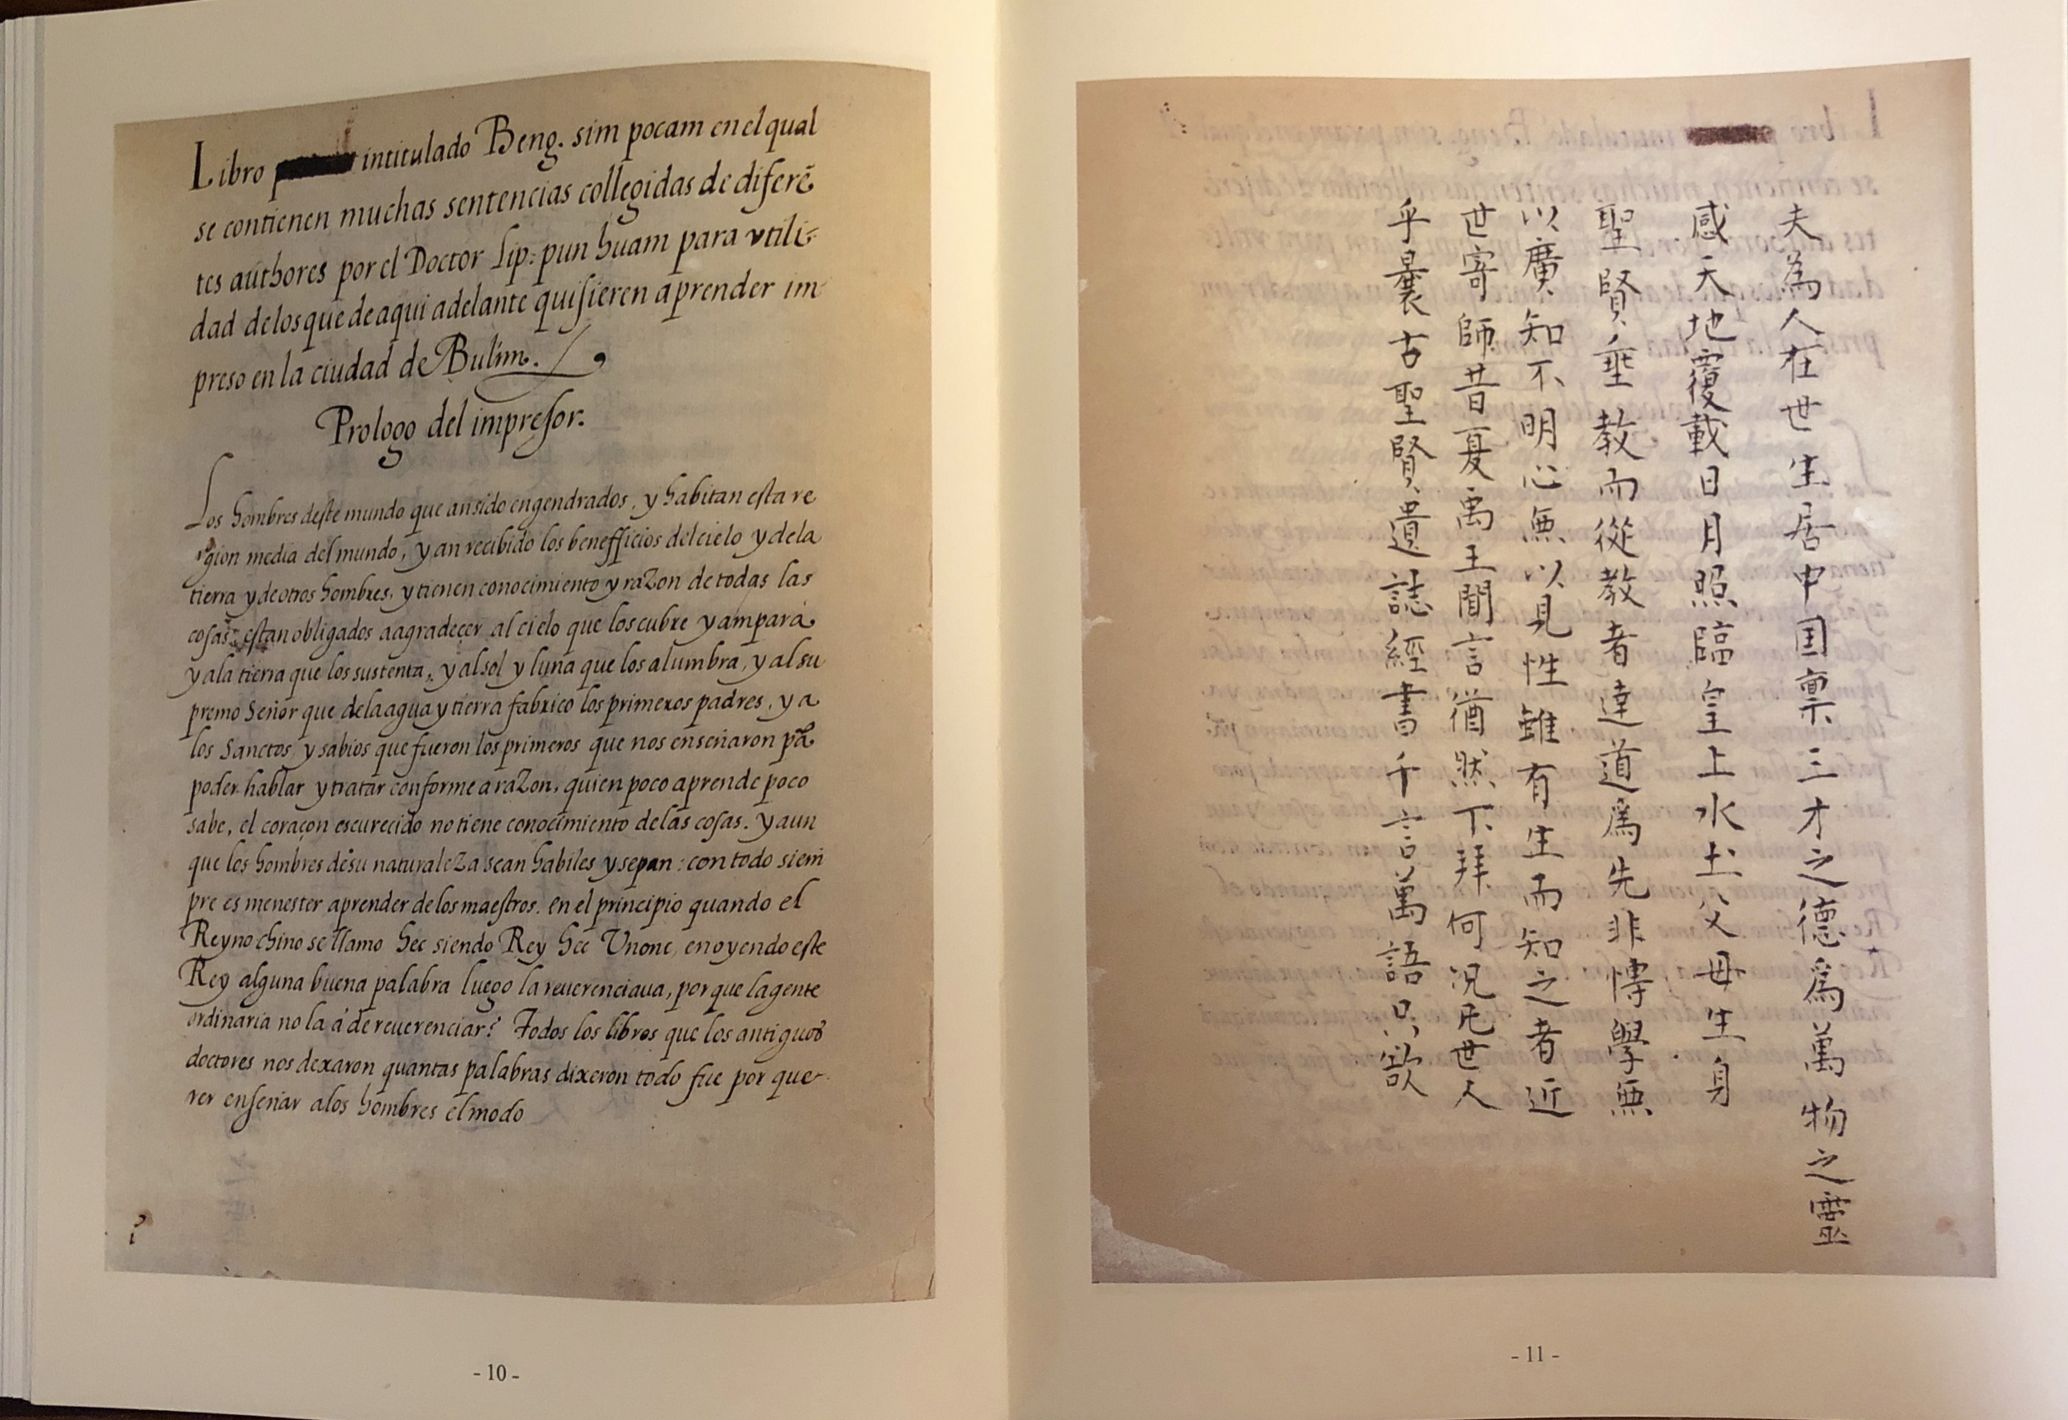 Libro intitulado Beng. sim pocam en el qual
se contienen muchas sentencias collegidas de diferē
tes authores por el Doctor lip: pun huam para vtili-
dad de los que de aqui adelante quisieren aprender im
preso en la ciudad de Bulim.
Prologo del impresor.
Los hombres deste mundo que an sido engendrados, y habitan esta re
gion media del mundo, y an recibido los benefficios del cielo y de la
tierra y de otros hombres, y tienen conocimiento y razon de todas las
cosas, estan obligados a agradecer al cielo que los cubre y ampara
y a la tierra que los sustenta, y al sol y luna que los alumbra, y al su
premo Señor que de la agua y tierra fabrico los primeros padres, y a
los Sanctos, y sabios que fueron los primeros que nos enseñaron pa
poder hablar y tratar conforme a razon, quien poco aprende poco
sabe, el coraçon escurecido no tiene conocimiento de las cosas. y aun
que los hombres de su naturaleza sean habiles y sepan: con todo siem
pre es menester aprender de los maestros. en el principio quando el
Reyno chino se llamo hee siendo Rey hee Vnone, en oyendo este
Rey alguna buena palabra luego la reuerenciaua, por que la gente
ordinaria no la a de reuerenciar? Todos los libros que los antiguos
doctores nos dexaron quantas palabras dixeron todo fue por que-
rer enseñar a los hombres el modo
- 10 -
夫為人在世生居中囯禀三才之德爲萬物之靈
感天地覆載日月照臨皇上水土父母生身
聖賢垂教而從教者達道爲先非愽學無
以廣知不明心無以見性雖有生而知之者近
世寄師昔夏禹王聞言猶然下拜何况凡世人
乎曩古聖賢遺誌經書千言萬語只欲
- 11 -